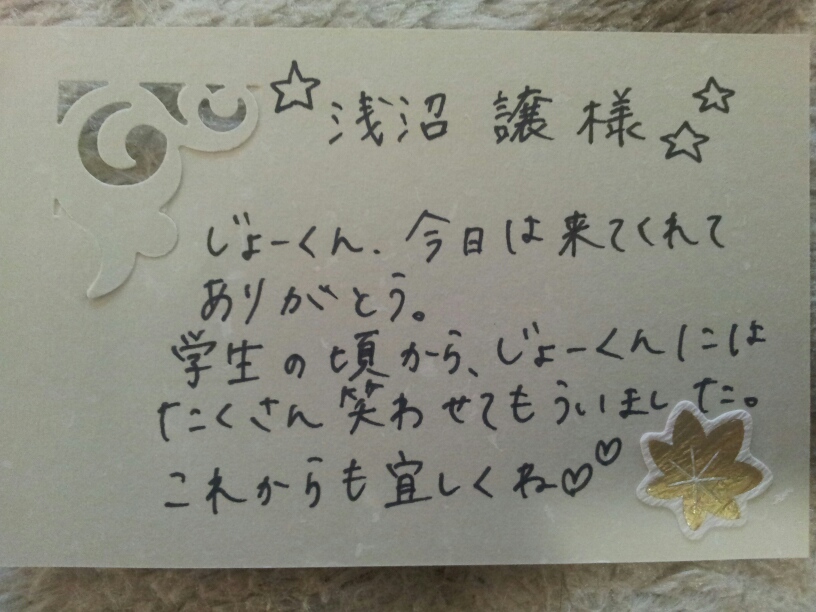 ☆浅沼 譲 様☆☆
じょーくん、今日は来てくれて
ありがとう。
学生の頃から、じょーくんには
たくさん笑わせてもらいました。
これからも宜しくね♡♡